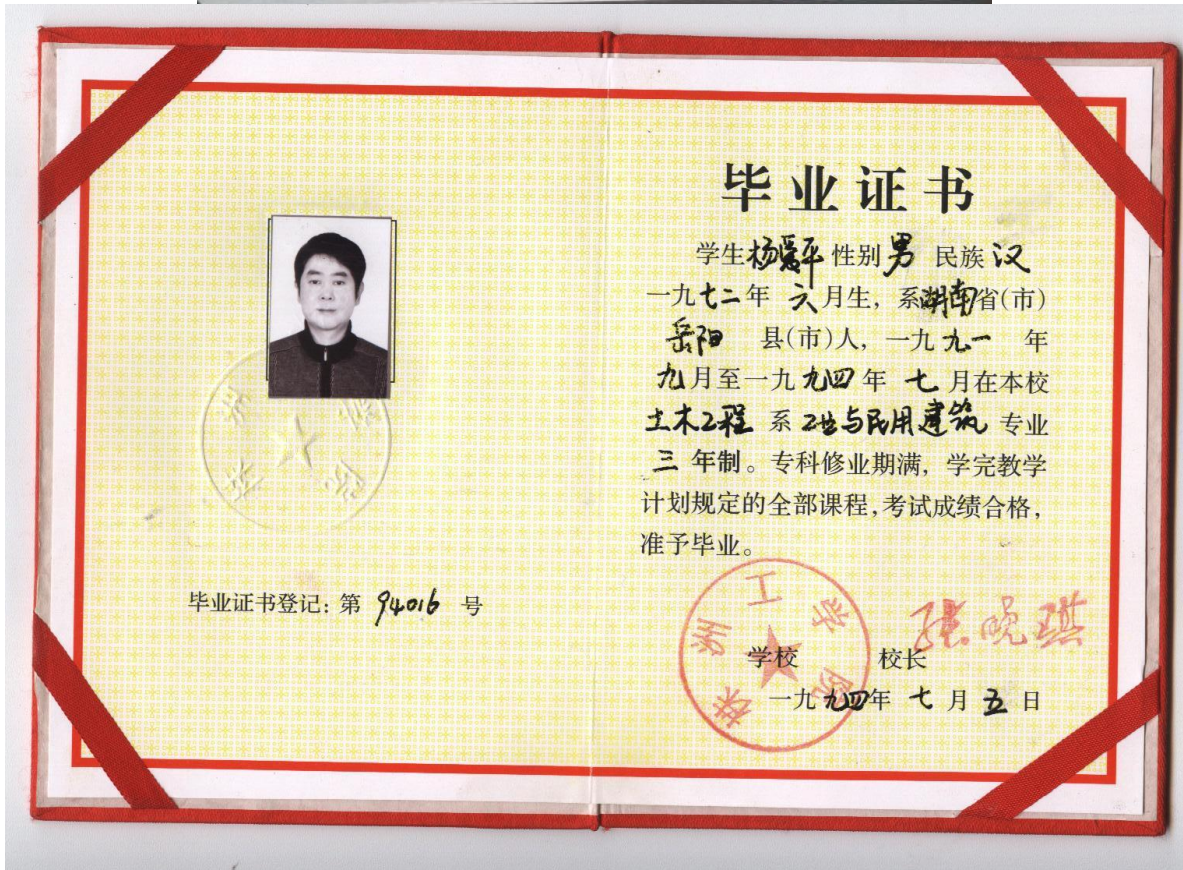 毕业证书
学生杨爱平性别男 民族汉
一九七二年 六月生，系湖南省(市)
岳阳 县(市)人，一九九一 年
九月至一九九四年 七月在本校
土木工程 系 工业与民用建筑 专业
三 年制。专科修业期满，学完教学
计划规定的全部课程，考试成绩合格，
准予毕业。
毕业证书登记：第 94016 号
株洲工学院
学校 校长 张晓琪
一九九四年 七月五日